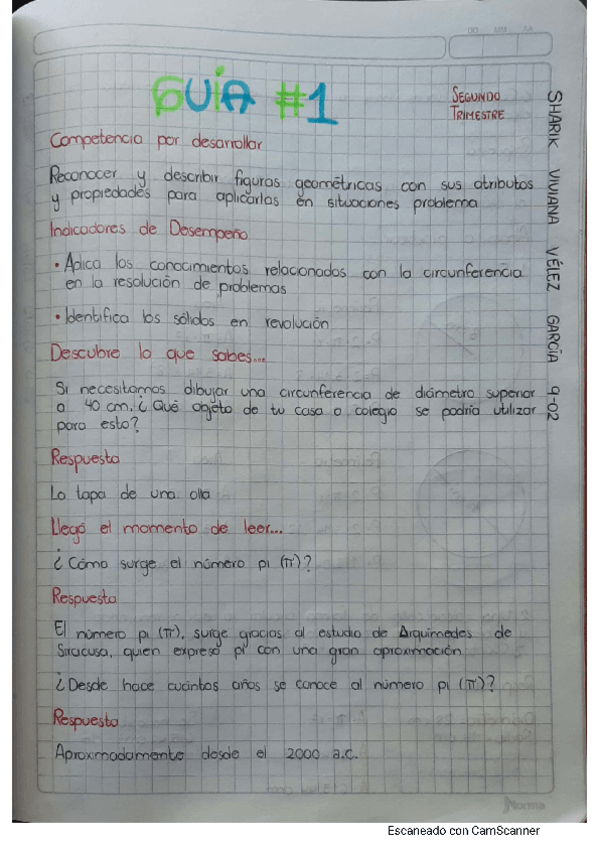 DD MM AA
GUIA #1
SEGUNDO
TRIMESTRE
Competencia por desarrollar
Reconocer y describir figuras geométricas con sus atributos
y propiedades para aplicarlas en situaciones problema
Indicadores de Desempeño
• Aplica los conocimientos relacionados con la circunferencia
en la resolución de problemas
• Identifica los sólidos en revolución
Descubre lo que sabes...
Si necesitamos dibujar una circunferencia de diámetro superior
a 40 cm, ¿Qué objeto de tu casa o colegio se podría utilizar
para esto?
Respuesta
La tapa de una olla
Llegó el momento de leer...
¿Cómo surge el número pi (π)?
Respuesta
El número pi (π), surge gracias al estudio de Arquímedes de
Siracusa, quien expresó pi con una gran aproximación
¿Desde hace cuántos años se conoce al número pi (π)?
Respuesta
Aproximadamente desde el 2000 a.c.
SHARIK VIVIANA VÉLEZ GARCÍA 9-02
Norma
Escaneado con CamScanner